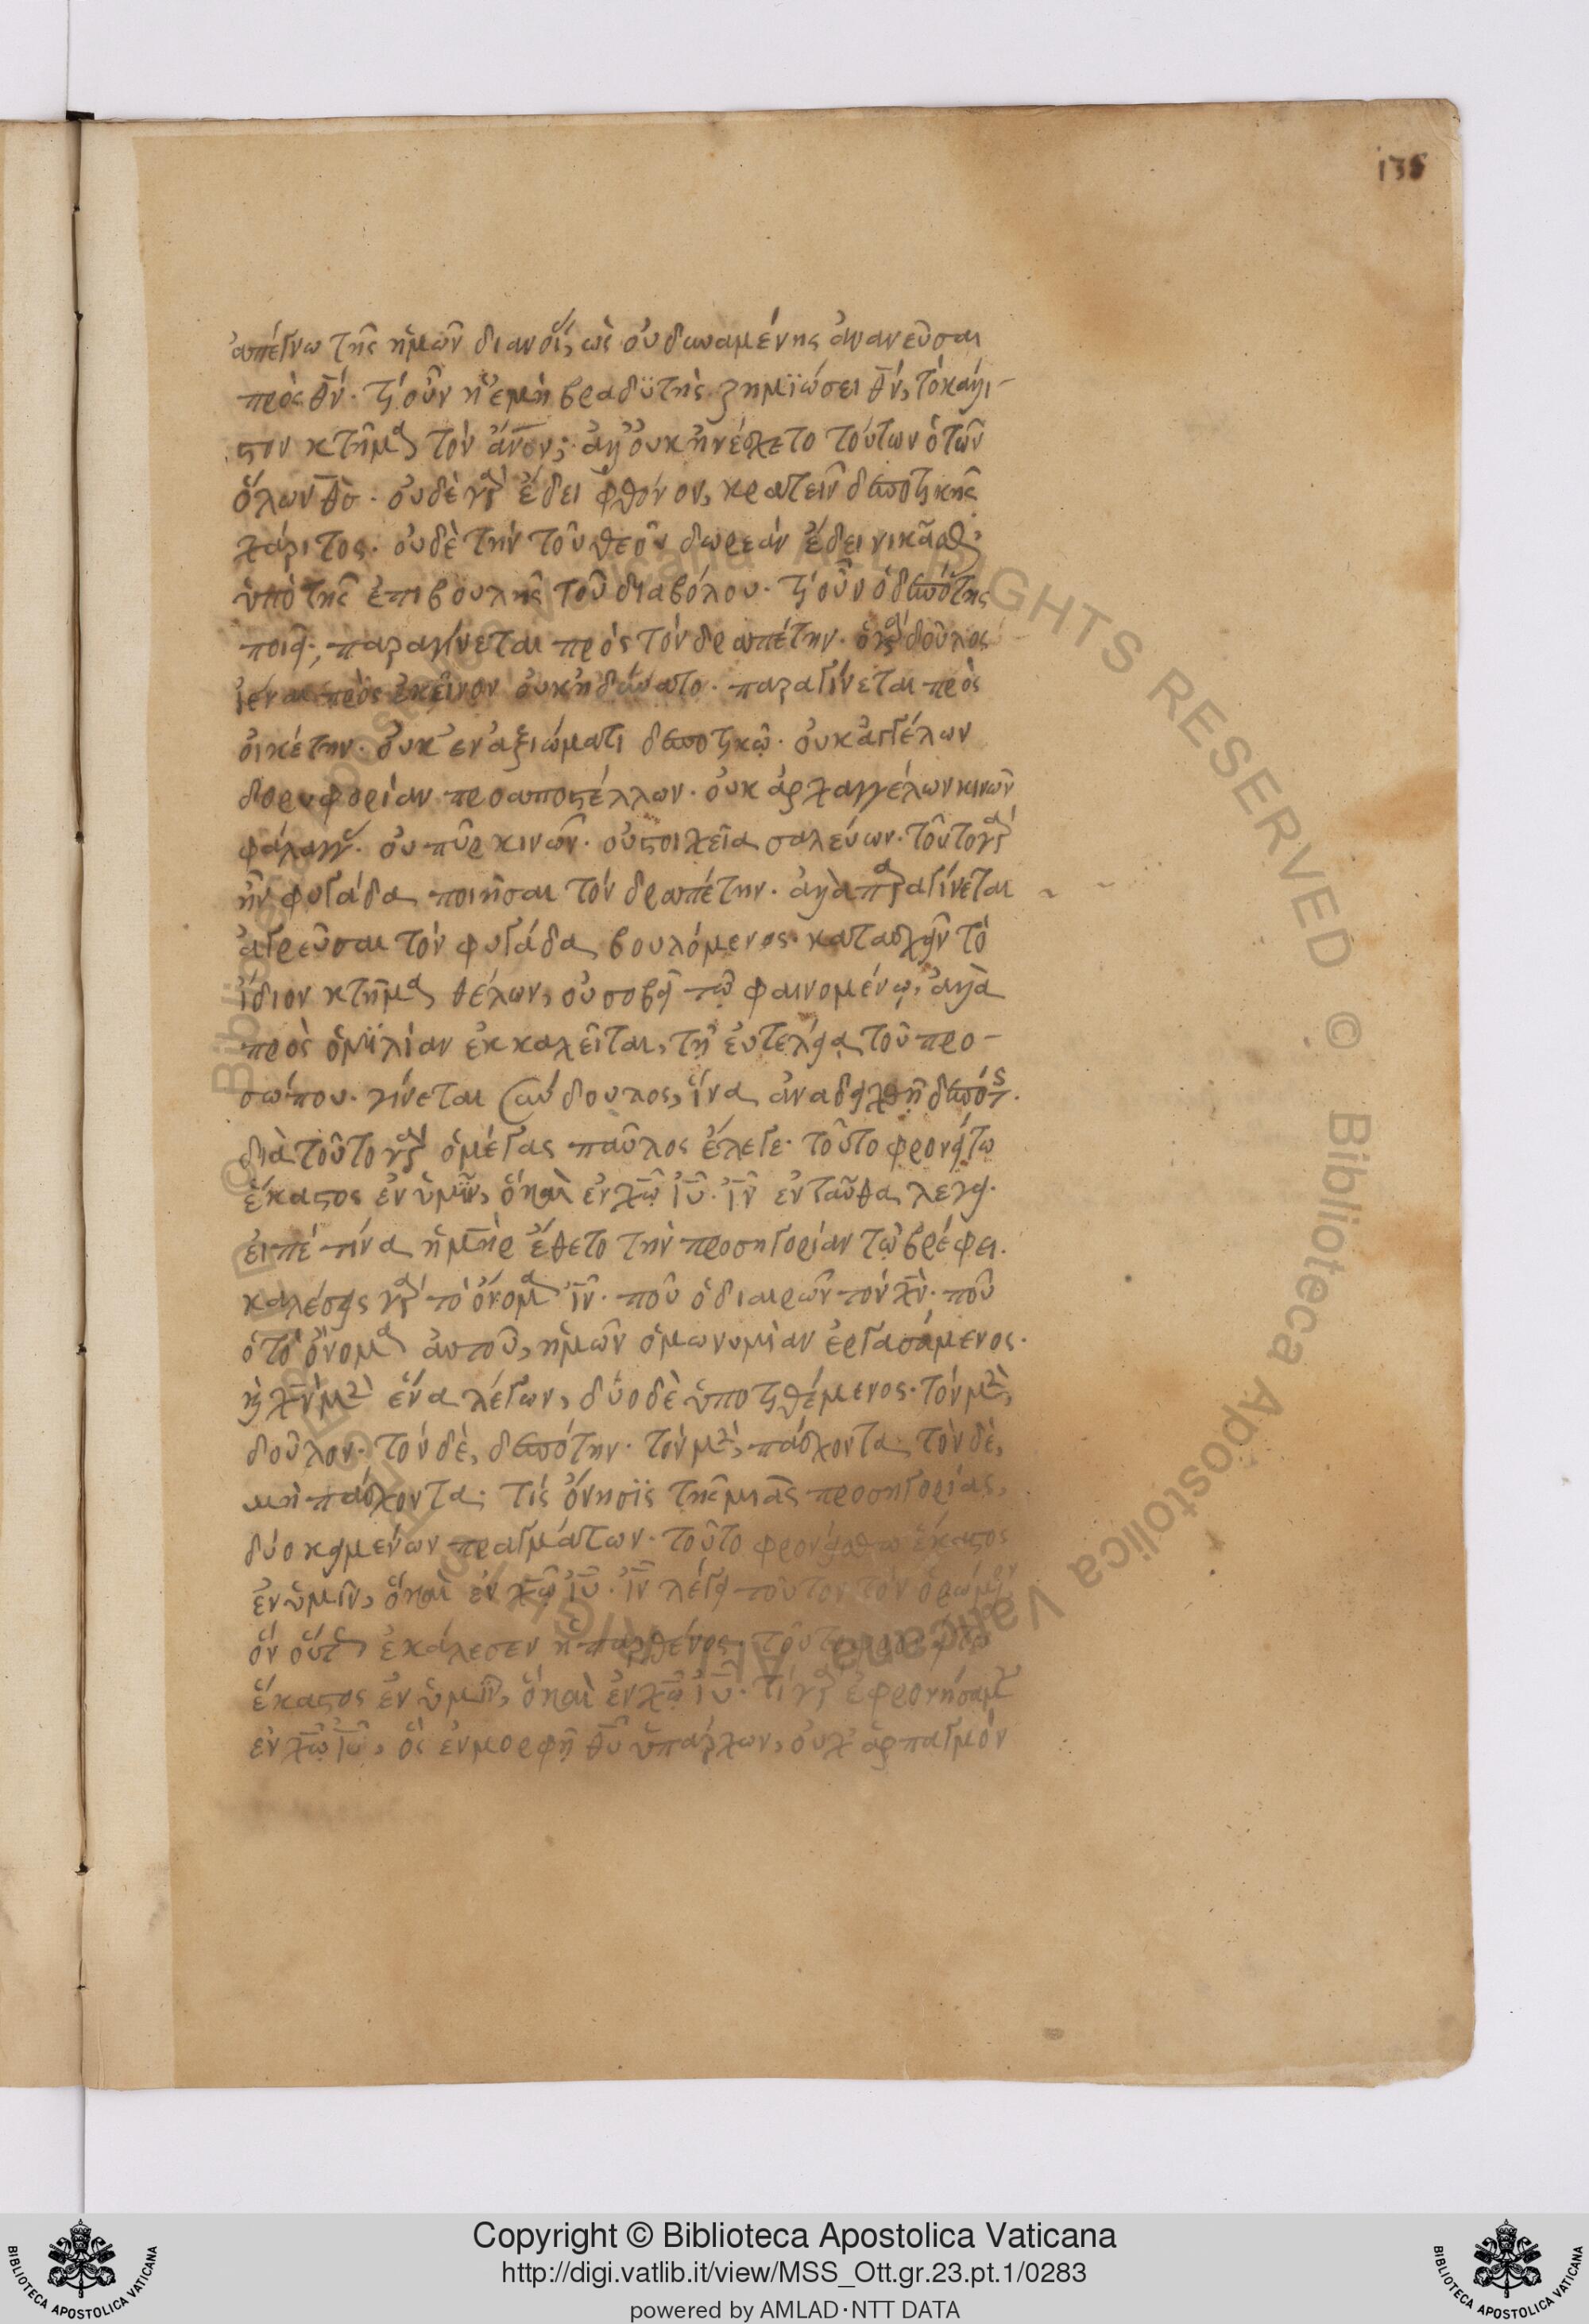 135
ἀπέγνω τῆς ἡμῶν διανοί, ὡς οὐ δυναμένης ἀνανεῦσαι
πρὸς θν. τί οὖν ἡ ἐμὴ βραδϋτὴς ζημϊώσει θν, τὸ κάλλι-
στον κτῆμα τὸν ἄνον; ἀλλ' οὐκ ἠνέσχετο τούτων ὁ τῶν
ὅλων θς. οὐδὲ γὰρ ἔδει φθόνον, κρατεῖν δεσποτικῆς
χάριτος. οὐδὲ τὴν τοῦ θεοῦ δωρεὰν ἔδει νικᾶσθαι
ὑπὸ τῆς ἐπιβουλῆς τοῦ διαβόλου. τί οὖν ὁ δεσπότης
ποιεῖ; παραγίνεται πρὸς τὸν δραπέτην. ὁ γὰρ δοῦλος
ἰέναι πρὸς ἐκεῖνον οὐκ ἠδύνατο. παραγίνεται πρὸς
οἰκέτην. οὐκ ἐν ἀξιώματι δεσποτικῷ. οὐκ ἀγγέλων
δορυφορίαν προαποστέλλων. οὐκ ἀρχαγγέλων κινῶν
φάλαγγα. οὐ πῦρ κινῶν. οὐ στοιχεῖα σαλεύων. τοῦτο γὰρ
ἦν φυγάδα ποιῆσαι τὸν δραπέτην. ἀλλὰ παραγίνεται
ἀγρεῦσαι τὸν φυγάδα βουλόμενος. κατασχεῖν τὸ
ἴδιον κτῆμα θέλων, οὐ σοβεῖ τῷ φαινομένῳ, ἀλλὰ
πρὸς ὁμϊλίαν ἐκκαλεῖται, τῇ εὐτελείᾳ τοῦ προ-
σώπου. γίνεται σύνδουλος, ἵνα ἀναδειχθῇ δεσπότης.
διὰ τοῦτο γὰρ ὁ μέγας παῦλος ἔλεγε. τοῦτο φρονείτω
ἕκαστος ἐν ὑμῖν, ὃ καὶ ἐν χω ιυ. ιν ἐνταῦθα λέγει.
εἰπὲ τίνα ἡ μηρ ἔθετο τὴν προσηγορίαν τῷ βρέφει.
καλέσεις γὰρ τὸ ὄνομα ιν. ποῦ ὁ διαιρῶν τὸν χν. ποῦ
ὁ τὸ ὄνομα αὐτοῦ, ἡμῶν ὁμωνυμίαν ἐργασάμενος.
καὶ χν μὲν ἕνα λέγων, δύο δὲ ὑποτιθέμενος. τὸν μὲν,
δοῦλον. τὸν δὲ, δεσπότην. τὸν μὲν, πάσχοντα. τὸν δὲ,
μὴ πάσχοντα. τίς ὄνησϊς τῆς μιᾶς προσηγορίας,
δύο κειμένων πραγμάτων. τοῦτο φρονείσθω ἕκαστος
ἐν ὑμῖν, ὃ καὶ ἐν χω ιυ. ιν λέγει τοῦτον τὸν ὁρώμενον
ὃν οὕτως ἐκάλεσεν ἡ παρθένος. τοῦτο φρονείτω
ἕκαστος ἐν ὑμῖν, ὃ καὶ ἐν χω ιυ. τί γὰρ ἐφρονήσαμεν
ἐν χω ιυ, ὃς ἐν μορφῇ θυ ὑπάρχων, οὐχ ἁρπαγμὸν
© Biblioteca Apostolica Vaticana ALL RIGHTS RESERVED
Copyright © Biblioteca Apostolica Vaticana
http://digi.vatlib.it/view/MSS_Ott.gr.23.pt.1/0283
powered by AMLAD·NTT DATA
BIBLIOTECA APOSTOLICA VATICANA
BIBLIOTECA APOSTOLICA VATICANA